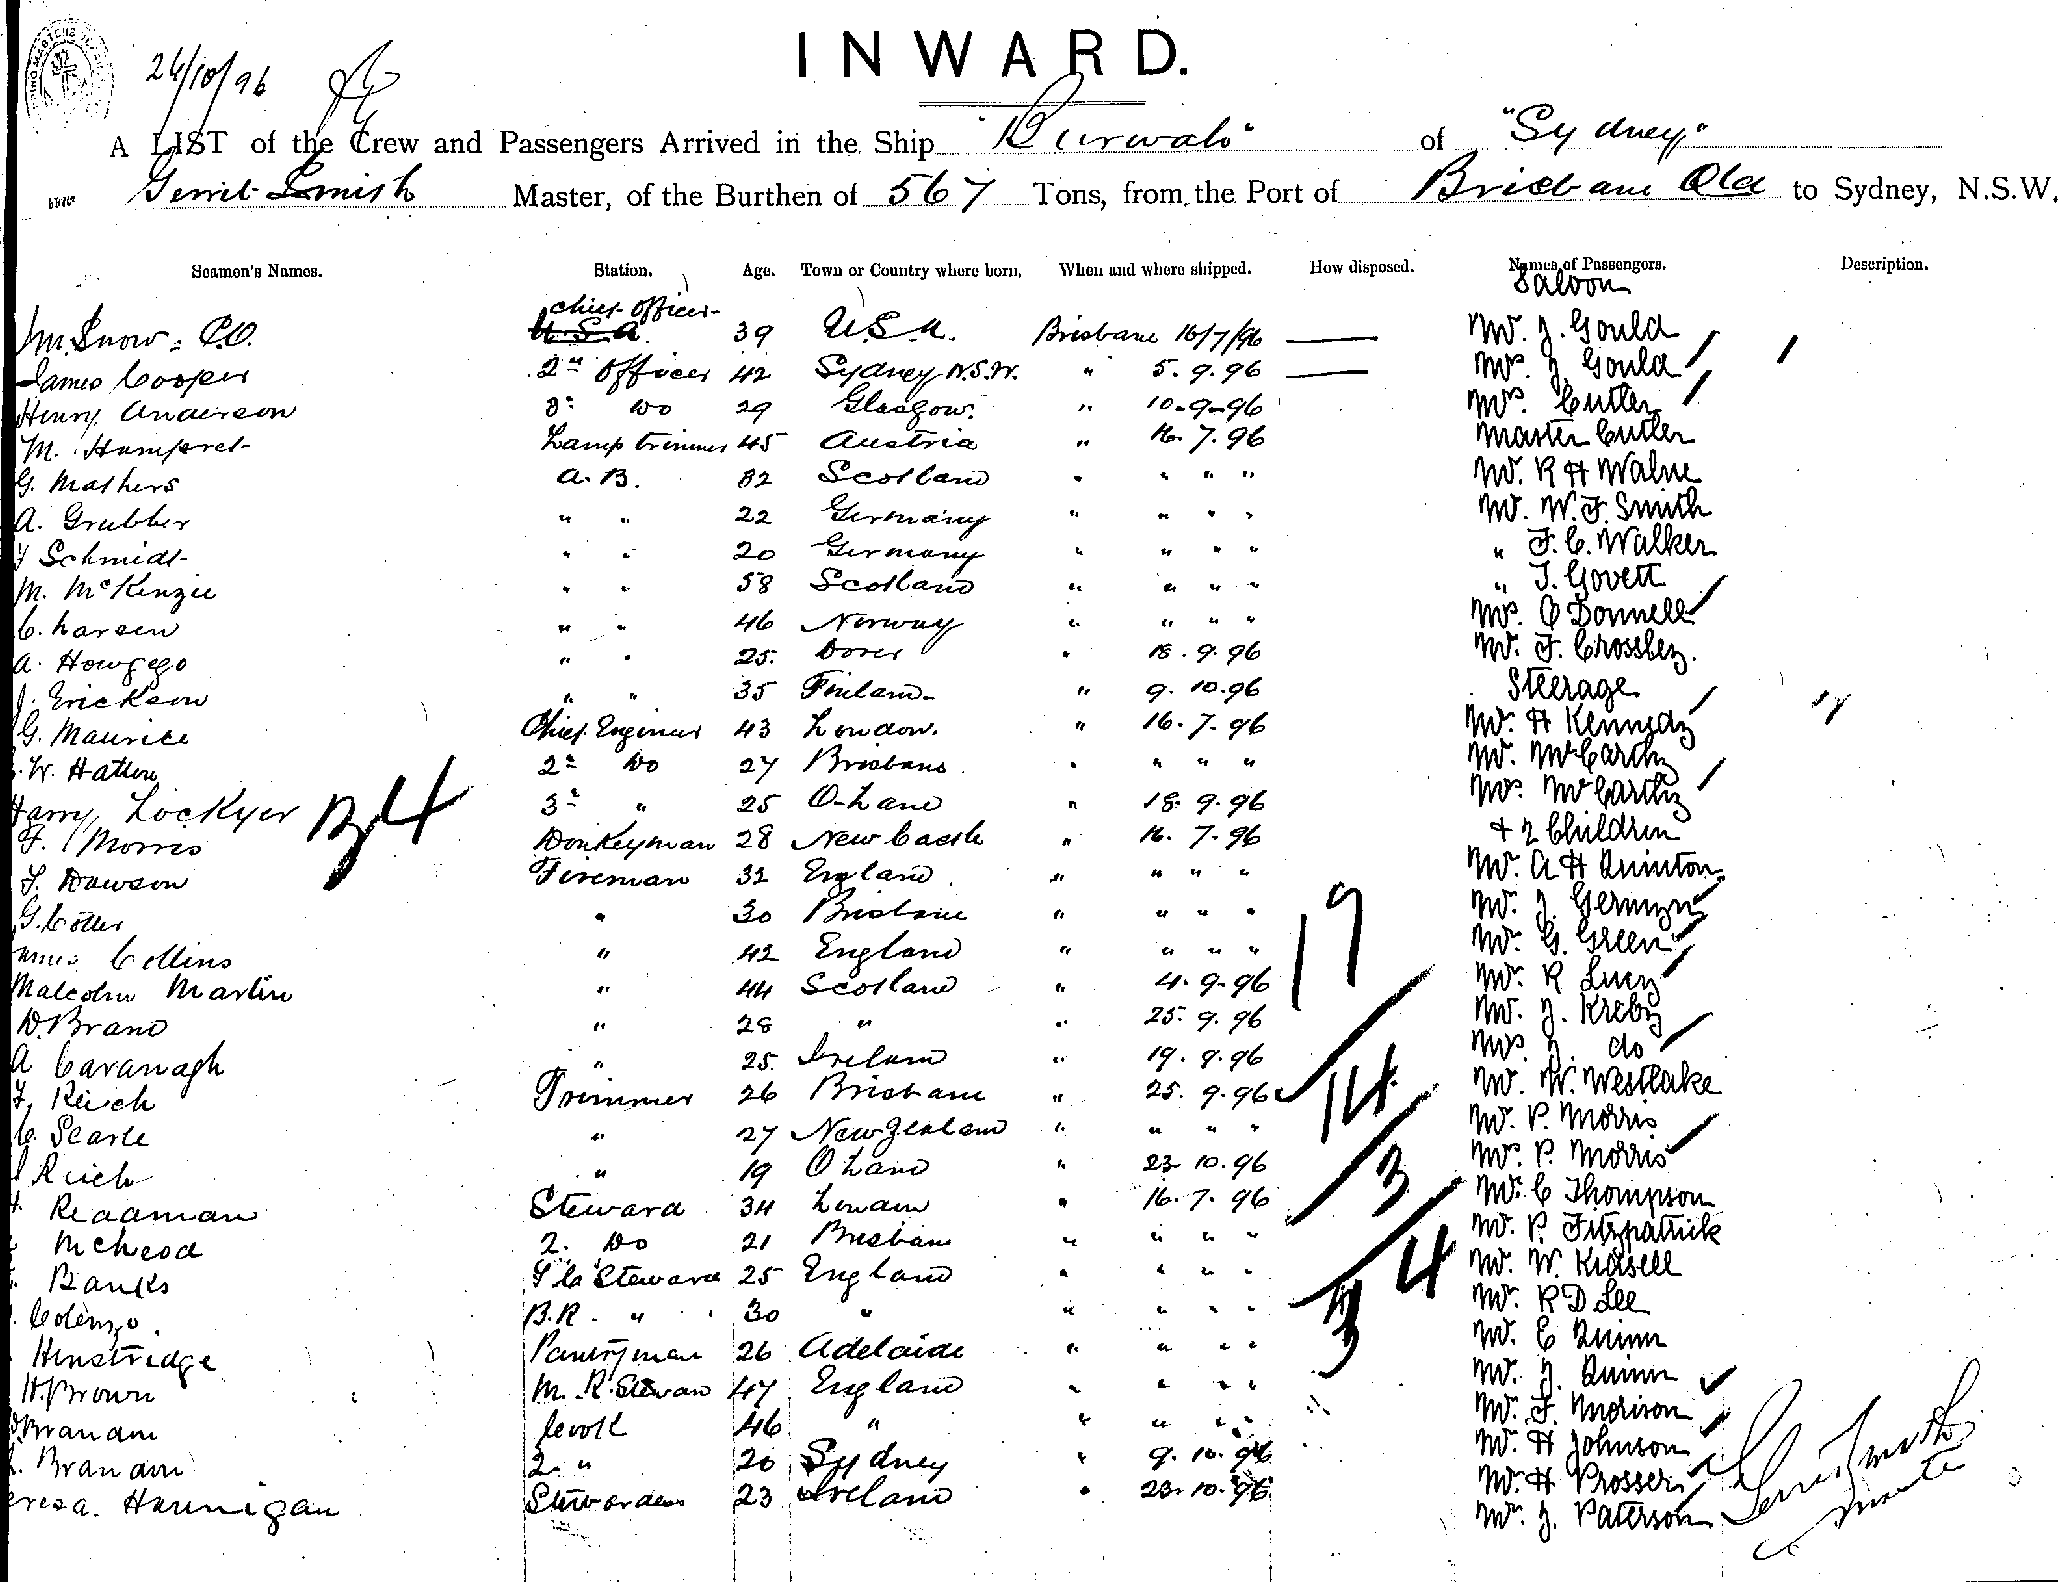 26/10/96
INWARD.
A LIST of the Crew and Passengers Arrived in the Ship "Burwah" of "Sydney"
Gerrit Smith Master, of the Burthen of 567 Tons, from the Port of Brisbane Qld to Sydney, N.S.W.
Seamen's Names. Station. Age. Town or Country where born, When and where shipped. How disposed. Names of Passengers. Description.
Saloon
Chief Officer
Snow P.O. U.S.A. 39 U.S.A. Brisbane 16/7/96 — Mr. J. Gould
James Cooper 2nd Officer 42 Sydney N.S.W. " 5.9.96 — Mrs. J. Gould
Henry Anderson 3 Do 29 Glasgow. " 10-9-96 Mrs. Cutler
M. Hampret Lamp trimmer 45 Austria " 16.7.96 Master Cutler
G. Mathers A.B. 32 Scotland " " " " Mr. R H Walne
A. Grubber " " 22 Germany " " " " Mr. W. F. Smith
Schmidt " " 20 Germany " " " " " F. C. Walker
M. McKenzie " " 58 Scotland " " " " " T. Govett
C. Larsen " " 46 Norway " " " " Mrs. O Donnell
A. Howgego " " 25. Dover " 18.9.96 Mr. F. Crossley.
J. Erickson " " 35 Finland " 9.10.96 Steerage
G. Maurice Chief Engineer 43 London. " 16.7.96 Mr. H Kennedy
W. Hatten 2nd Do 27 Brisbane " " " " Mr. McCarthy
Harry Lockyer 3 " 25 Q-Land " 18.9.96 Mrs. McCarthy
F. Morris Donkeyman 28 New Castle " 16.7.96 + 2 Children
T. Dawson Fireman 32 England " " " " Mr. A H Quinton
G. Cotter " 30 Brisbane " " " " Mr. J.
James Collins " 42 England " " " " Mr. G. Green
Malcolm Martin " 44 Scotland " 4.9.96 Mr. R Lucy
D. Brand " 28 " " 25.9.96 Mr. J. Kreby
A Cavanagh " 25. Ireland " 19.9.96 Mrs J. do
Reich Trimmer 26 Brisbane " 25.9.96 Mr. W. Westlake
C. Searle " 27 New Zealand " " " " Mr. P. Morris
Reich " 19 Q Land " 23.10.96 Mrs. P. Morris
Readman Steward 34 London " 16.7.96 Mr. C Thompson
McLeod 2. Do 21 Brisbane " " " " Mr. P. Fitzpatrick
Banks Steward 25 England " " " " Mr. W. Kidsell
Colenzo. B.R. " 30 " " " " " Mr. R D Lee
Henstridge Pantryman 26 Adelaide " " " " Mr. C Quinn
H. Brown M. R. Stewar 47 England " " " " Mr. J. Quinn
Brandon Cook 46 " " " " " Mr. F. Morison
Brandon 2. " 20 Sydney " 9.10.96 Mr. H Johnson
eresa. Hannigan Stewardess 23 Ireland " 23.10.96 Mr. H Prosser
Mr. J. Paterson
19
14
3
4
3
Gerrit Smith
Master